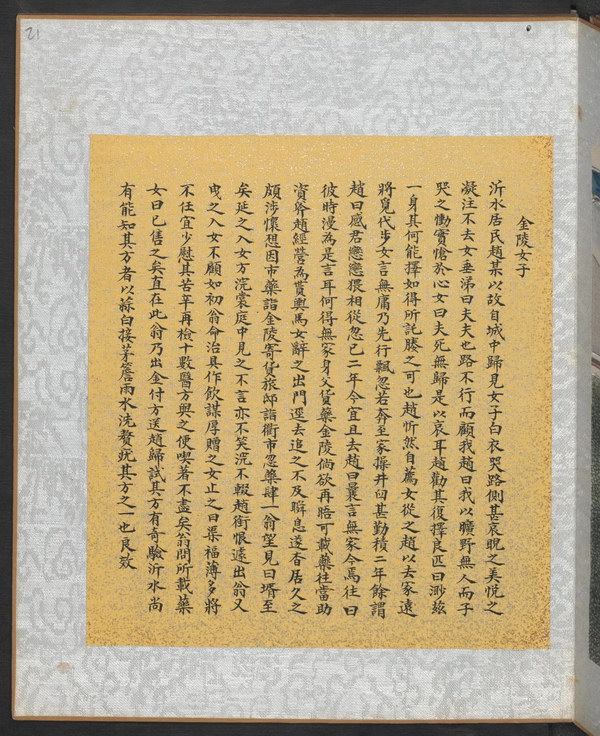 21
金陵女子
沂水居民趙某以故自城中歸見女子白衣哭路側甚哀睨之美悅之
凝注不去女垂涕曰夫夫也路不行而顧我趙曰我以曠野無人而子
哭之慟實愴於心女曰夫死無歸是以哀耳趙勸其復擇良匹曰渺茲
一身其何能擇如得所託媵之可也趙忻然自薦女從之趙以去家遠
將覓代步女言無庸乃先行飄忽若奔至家操井臼甚勤積二年餘謂
趙曰感君戀戀猥相從忽已二年今宜且去趙曰曩言無家今焉往曰
彼時漫為是言耳何得無家身父貨藥金陵倘欲再晤可載藥往當助
資斧趙經營為貰輿馬女辭之出門逕去追之不及瞬息遂杳居久之
頗涉懷想因市藥詣金陵寄貨旅邸詣衢市忽藥肆一翁望見曰壻至
矣延之入女方浣裳庭中見之不言亦不笑浣不輟趙銜恨遽出翁又
曳之入女不顧如初翁命治具作飲謀厚贈之女止之曰渠福薄多將
不任宜少慰其苦辛再檢十數醫方與之便喫著不盡矣翁問所載藥
女曰已售之矣直在此翁乃出金付方送趙歸試其方有奇驗沂水尚
有能知其方者以蒜臼接茅簷雨水洗贅疣其方之一也良效